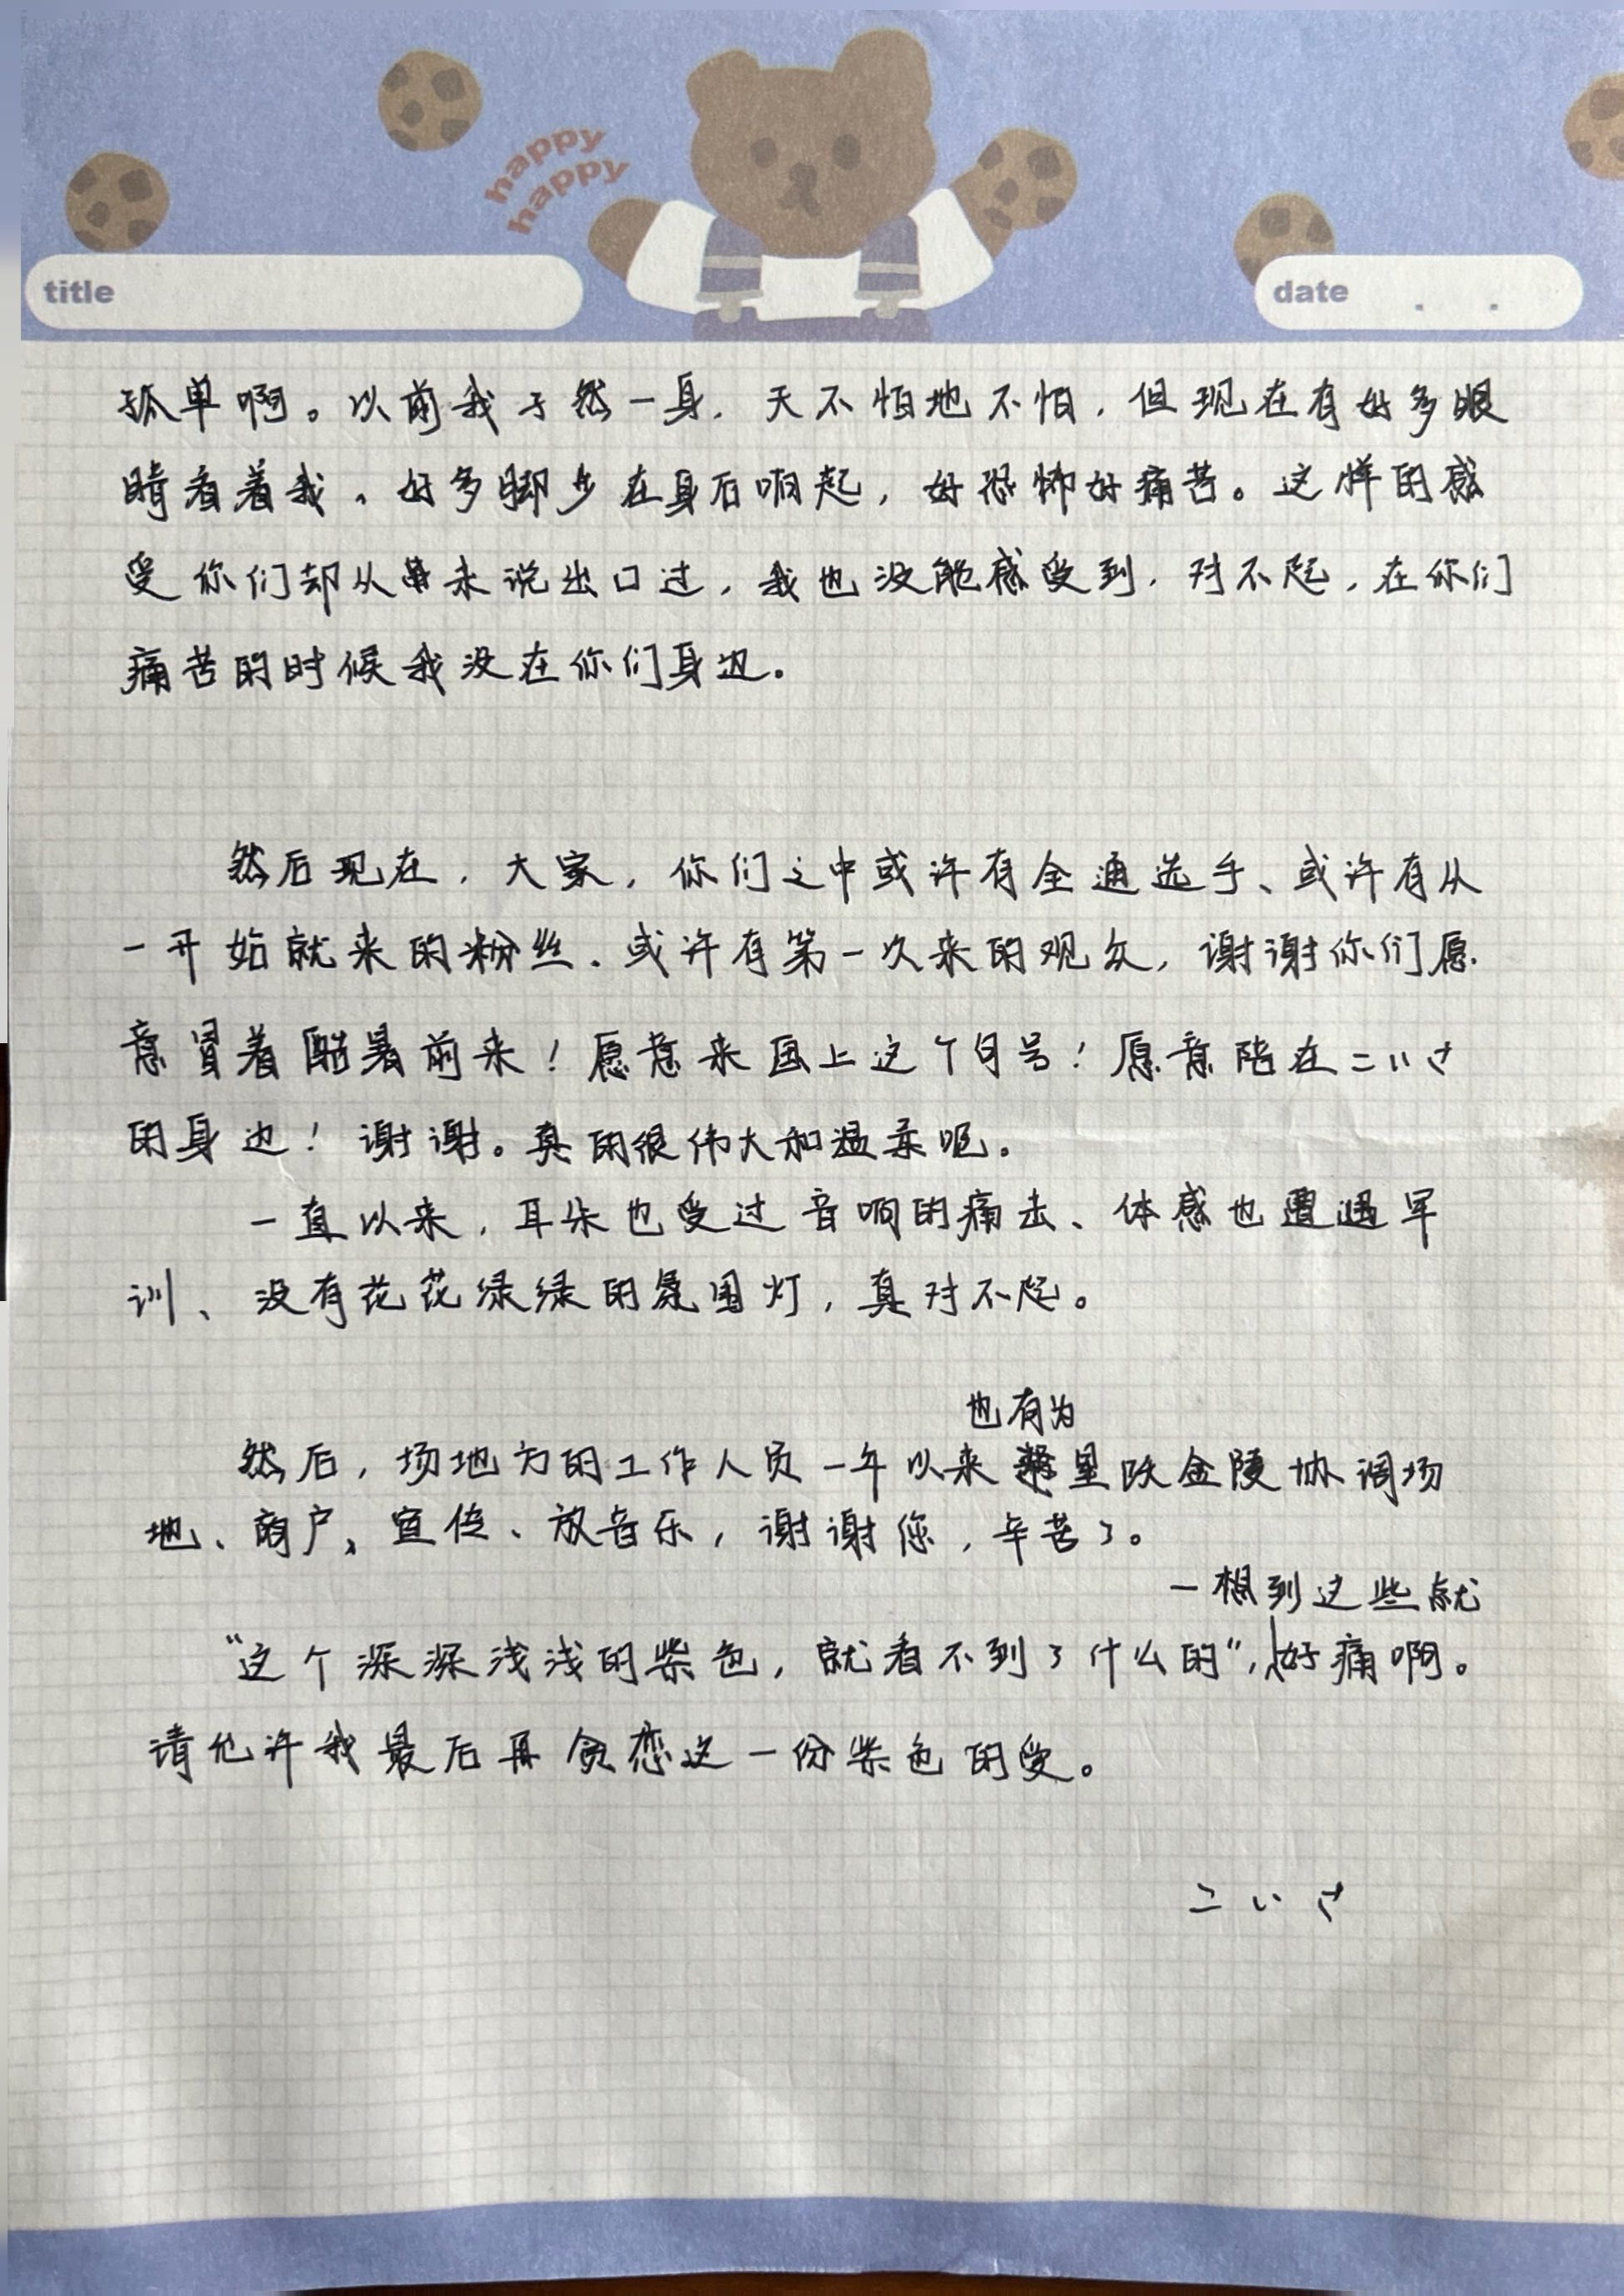 happy
happy
title
date . .
孤单啊。以前我孑然一身，天不怕地不怕，但现在有好多眼
睛看着我，好多脚步在身后响起，好恐怖好痛苦。这样的感
受你们却从未说出口过，我也没能感受到，对不起，在你们
痛苦的时候我没在你们身边。
然后现在，大家，你们之中或许有全通选手、或许有从
一开始就来的粉丝、或许有第一次来的观众，谢谢你们愿
意冒着酷暑前来！愿意来到上这个自号！愿意陪在こいさ
的身边！谢谢。真的很伟大和温柔呢。
一直以来，耳朵也受过音响的痛击、体感也遭遇军
训、没有花花绿绿的氛围灯，真对不起。
也有为
然后，场地方的工作人员一年以来星跃金陵协调场
地、商户、宣传、放音乐，谢谢您，辛苦了。
一想到这些就
“这个深深浅浅的紫色，就看不到了什么的”，好痛啊。
请允许我最后再贪恋这一份紫色的爱。
こいさ